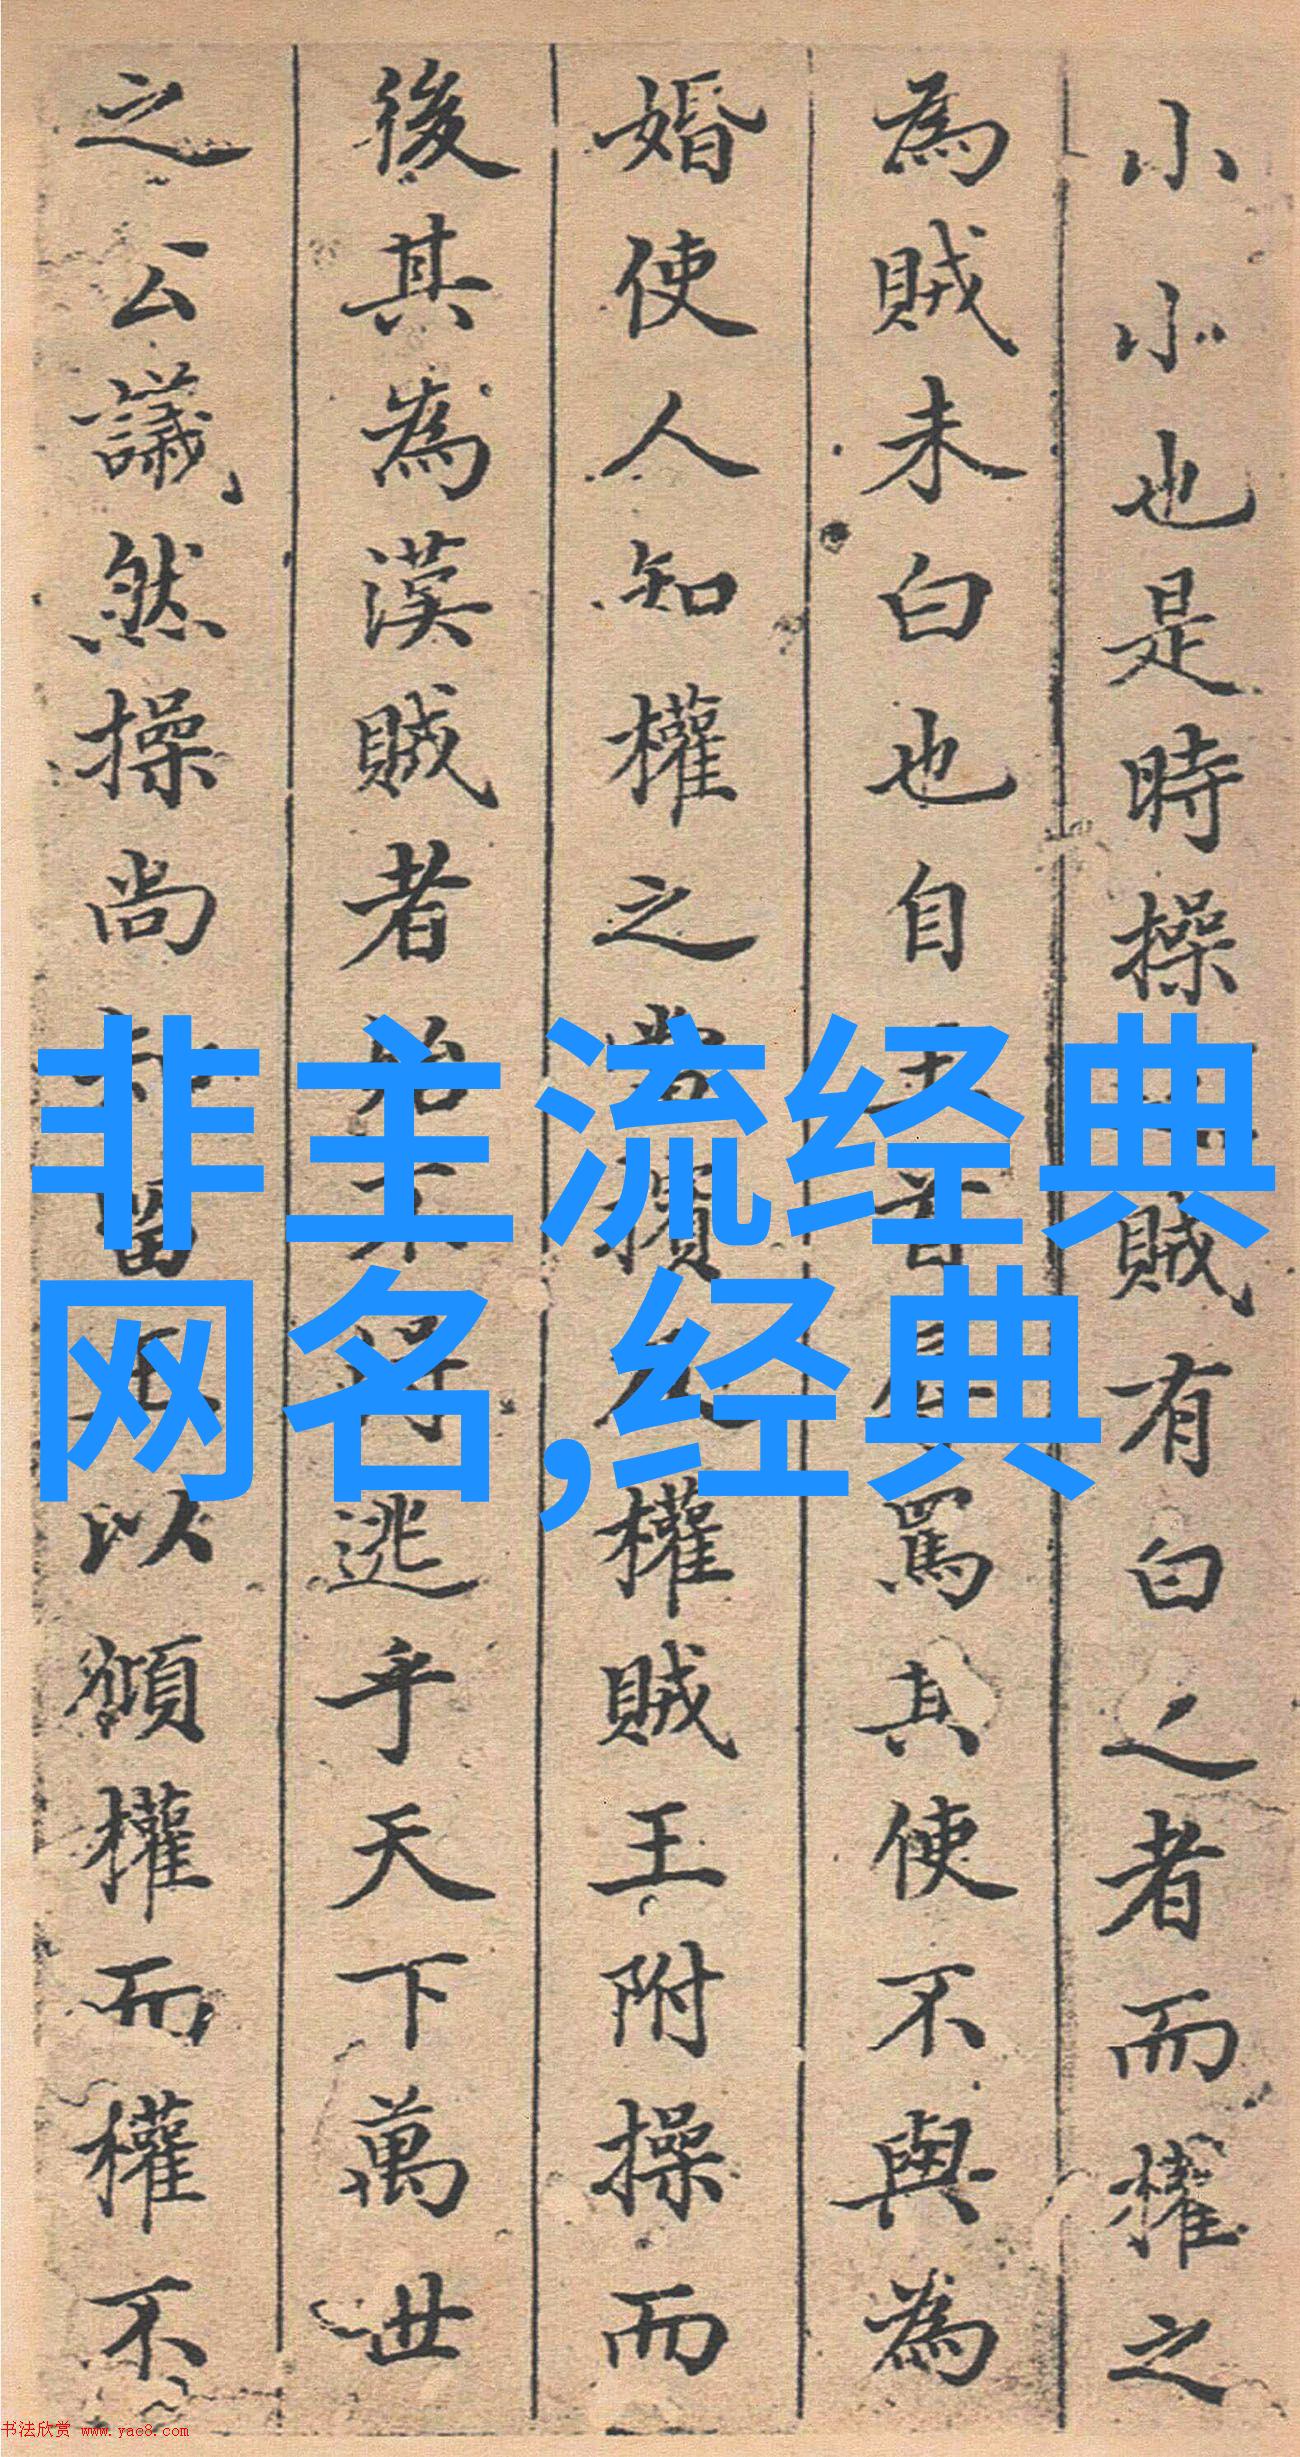 小小也是時操賊有白之者而權之
為賊未白也自罵其使不與為
婚使人知權之權賊王附操而
後其為漢賊者不得逃乎天下萬世
之公議然操尚以權而權不
非主流经典
网名,经典
书法欣赏 www.yac8.com